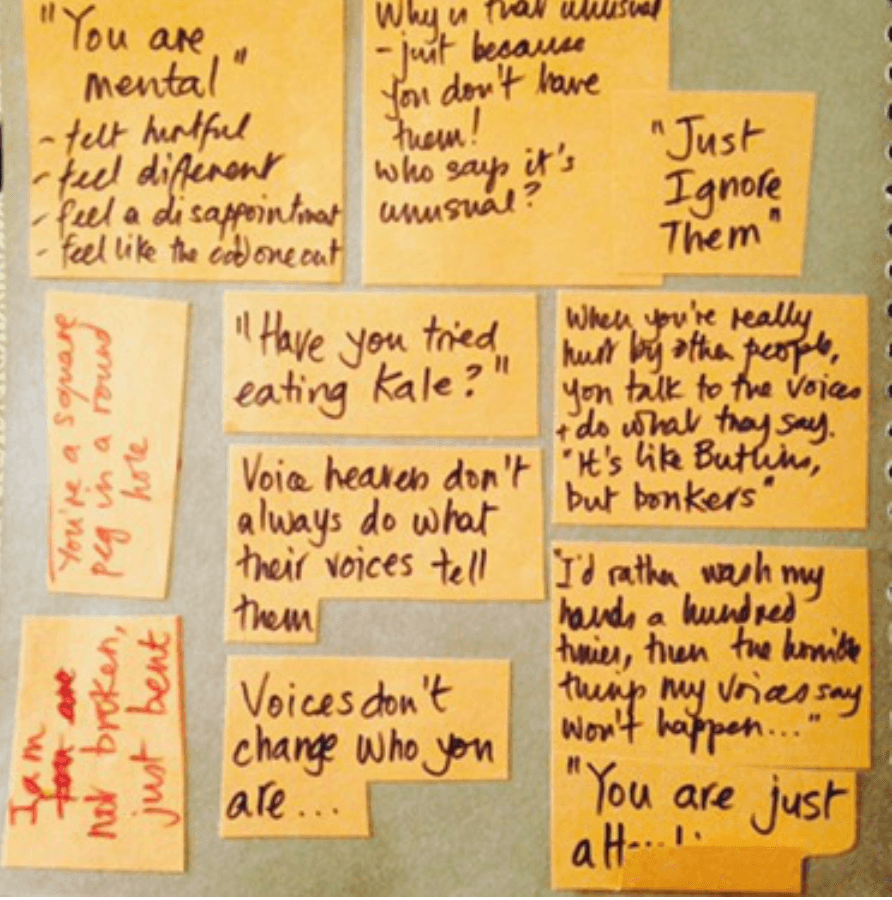 "You are
mental"
- felt hurtful
- feel different
- feel a disappointment
- feel like the odd one out
Why is that unusual
- just because
you don't have
them!
who says it's
unusual?
"Just
Ignore
Them"
You're a square
peg in a round
hole
"Have you tried
eating Kale?"
When you're really
hurt by other people,
you talk to the voices
+ do what they say.
"It's like Butlins,
but bonkers"
Voice hearers don't
always do what
their voices tell
them
"I'd rather wash my
hands a hundred
times, then the horrible
things my voices say
won't happen..."
I am
You are
not broken,
just bent
Voices don't
change who you
are...
"You are just